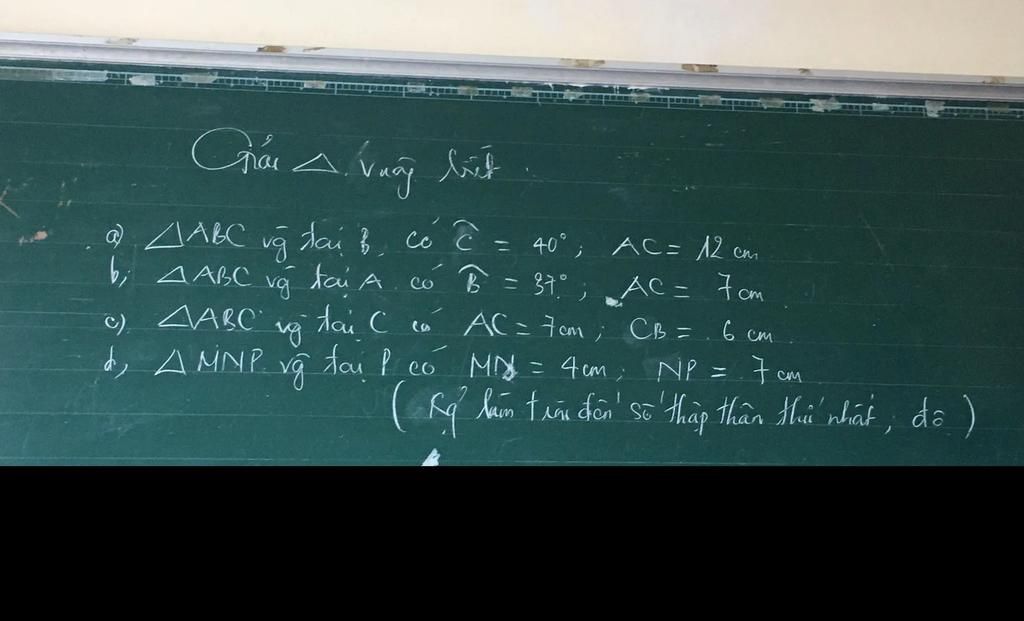 Giải △ vuông biết.
a) △ABC vg̃ tại B, có Ĉ = 40°; AC = 12 cm
b, △ABC vg̃ tại A có B̂ = 37°; AC = 7 cm
c) △ABC vg̃ tại C có AC = 7cm; CB = 6 cm
d, △MNP vg̃ tại P có MN = 4cm; NP = 7 cm
(Kq̉ làm tròn đến số thập phân thứ nhất, độ)